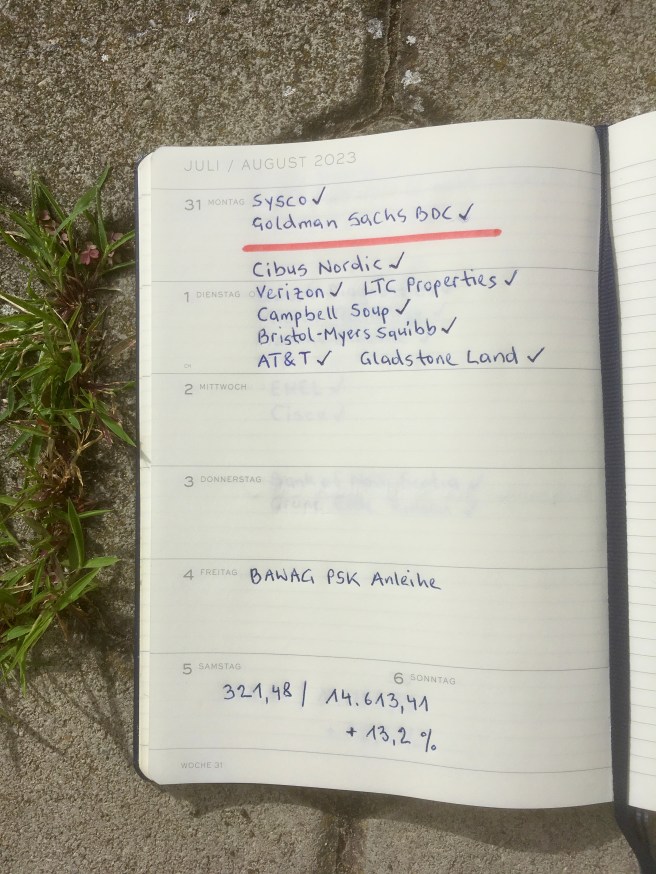 JULI / AUGUST 2023
31 MONTAG Sysco ✓
Goldman Sachs BDC ✓
Cibus Nordic ✓
1 DIENSTAG Verizon ✓ LTC Properties ✓
Campbell Soup ✓
Bristol-Myers Squibb ✓
AT&T ✓ Gladstone Land ✓
2 MITTWOCH
3 DONNERSTAG
4 FREITAG BAWAG PSK Anleihe
5 SAMSTAG
6 SONNTAG
321,48 / 14.613,41
+ 13,2 %
WOCHE 31